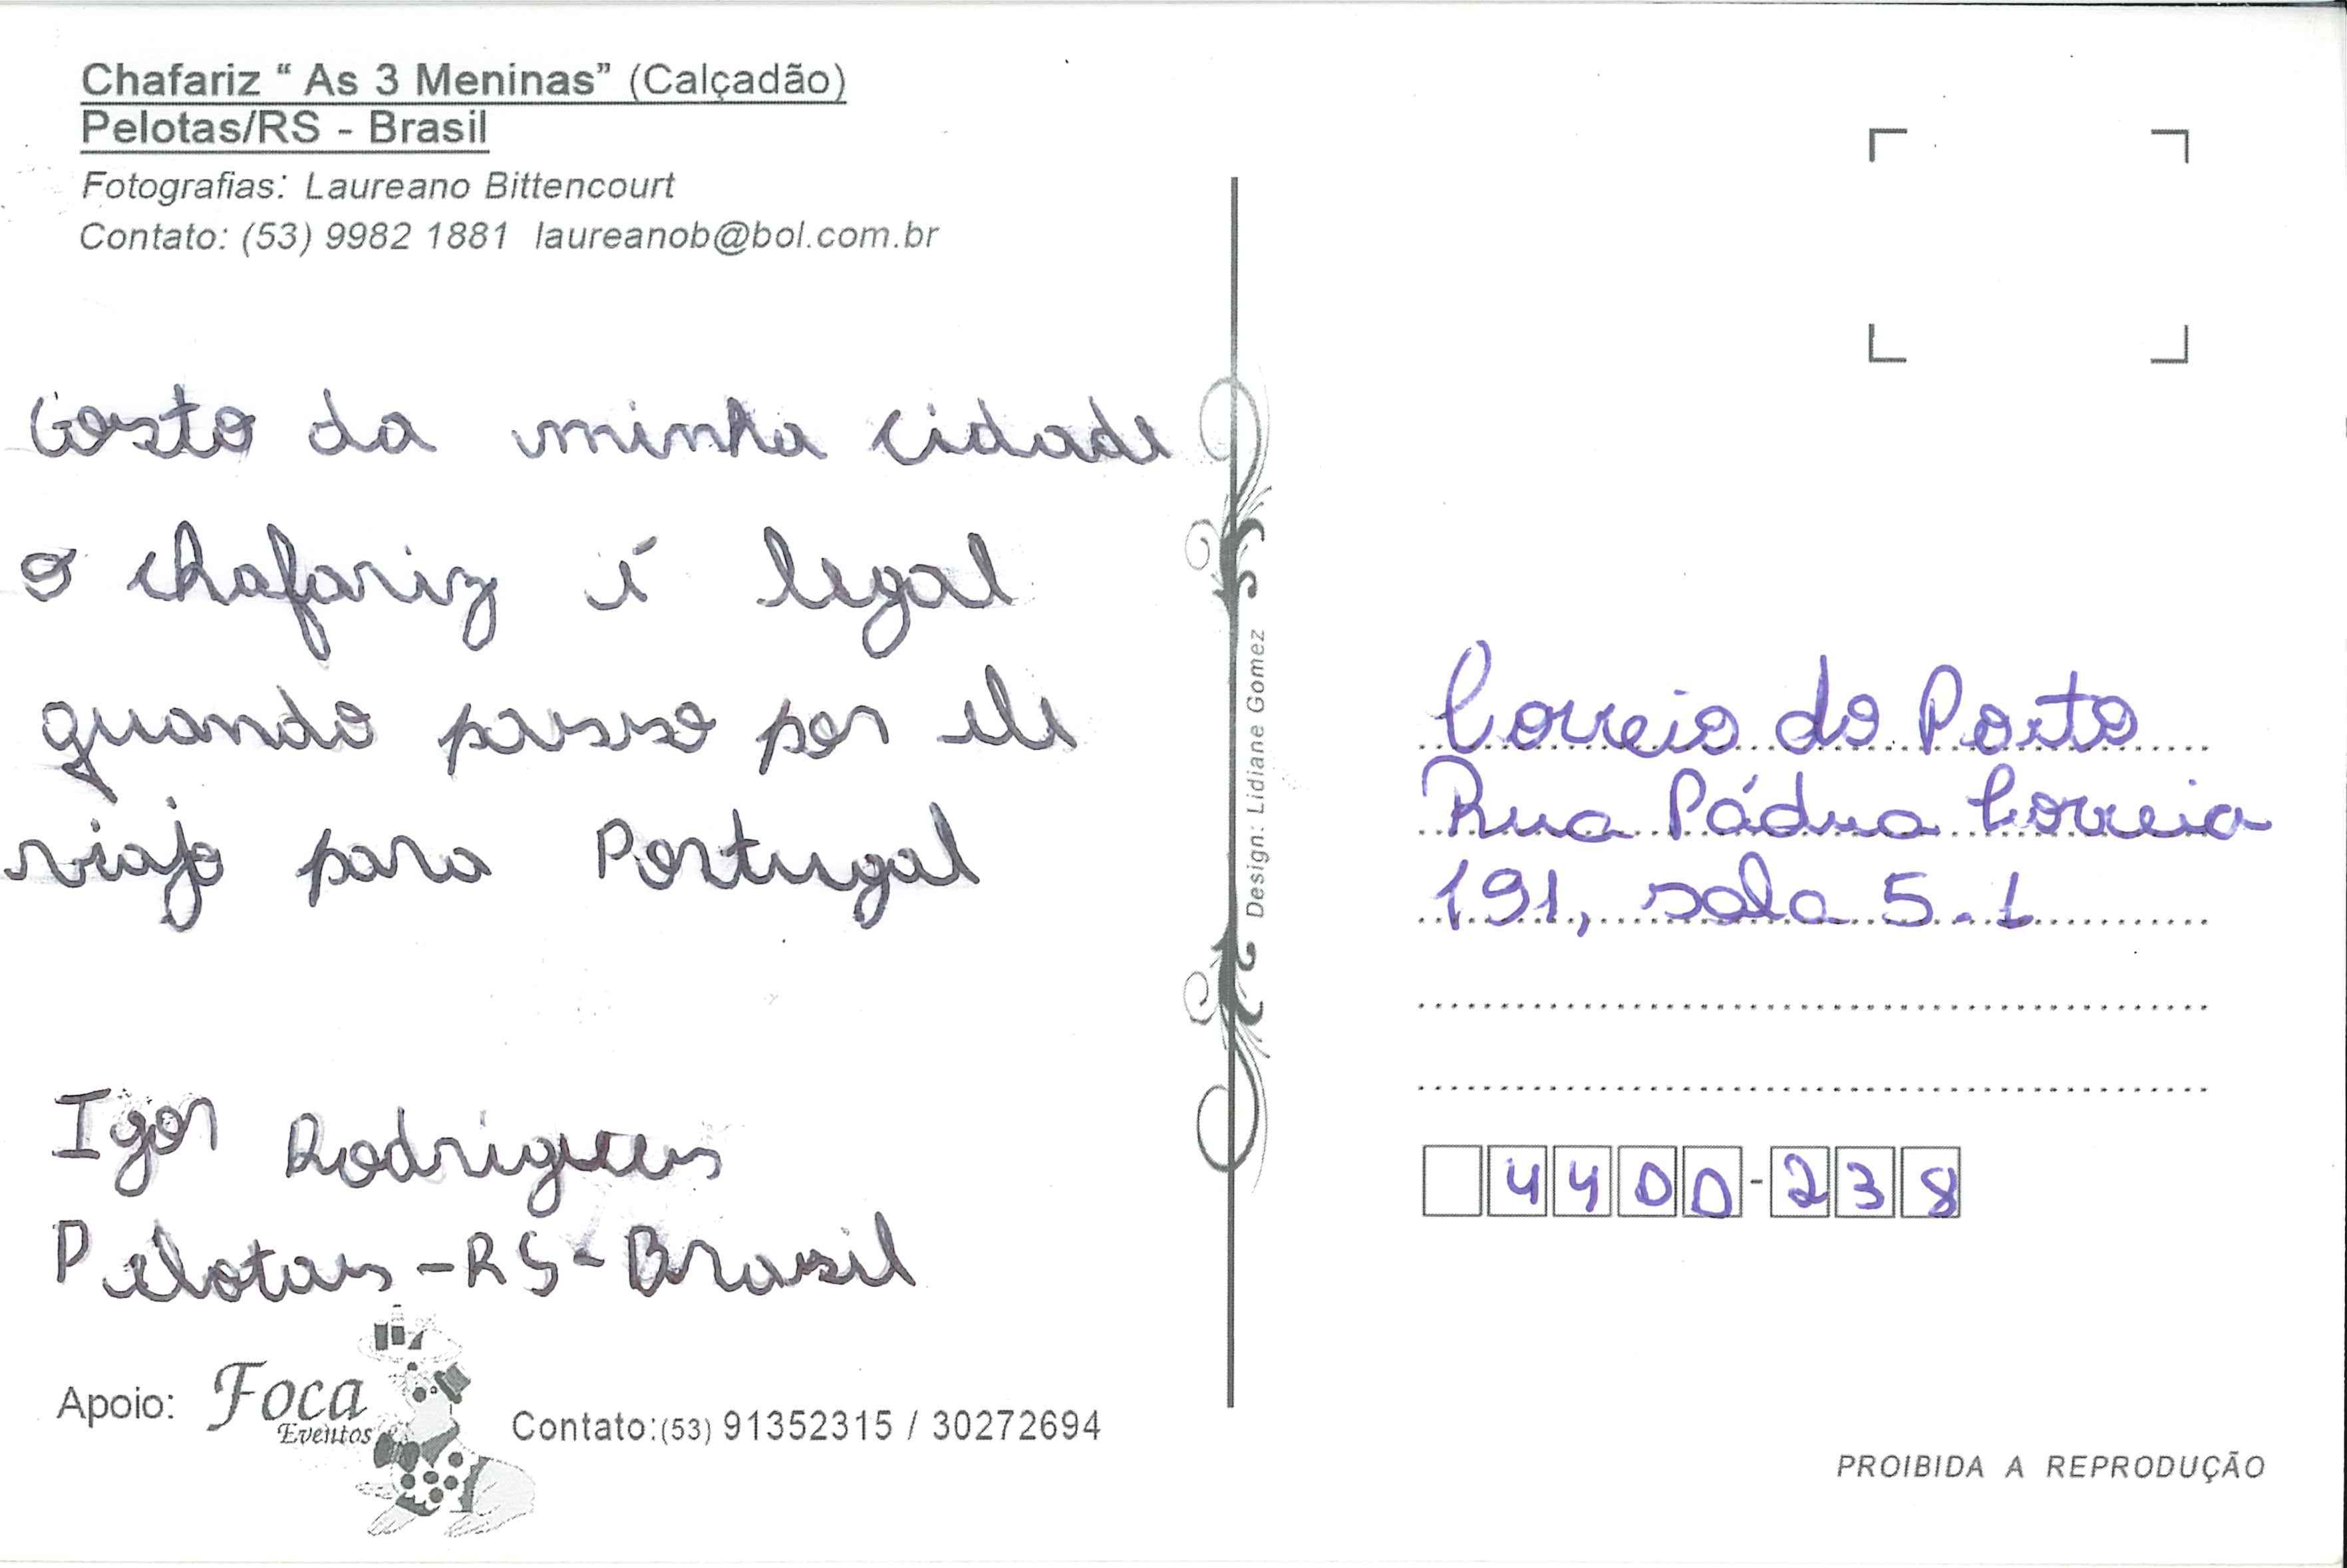 Chafariz “ As 3 Meninas” (Calçadão)
Pelotas/RS - Brasil
Fotografias: Laureano Bittencourt
Contato: (53) 9982 1881 laureanob@bol.com.br
Gosto da minha cidade
o chafariz é legal
quando passo por ele
viajo para Portugal
Igor Rodrigues
Pelotas - RS - Brasil
Apoio: Foca
Eventos
Contato:(53) 91352315 / 30272694
Design: Lidiane Gomez
Correio do Porto
Rua Pádua Correia
191, sala 5.1
4400-238
PROIBIDA A REPRODUÇÃO